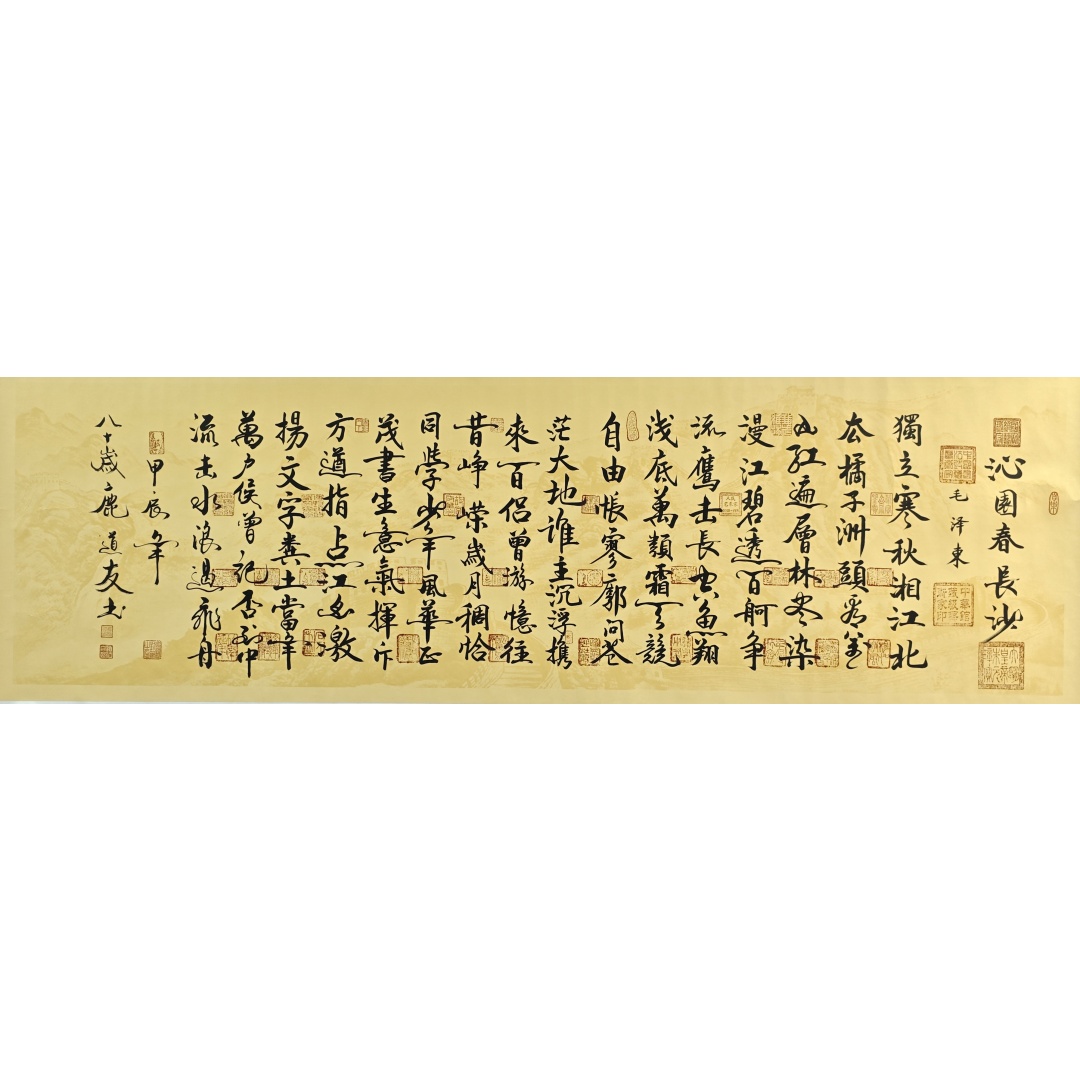 沁園春長沙
毛泽東
獨立寒秋湘江北
去橘子洲頭看萬
山红遍層林尽染
漫江碧透百舸争
流鷹击長空魚翔
浅底萬類霜天競
自由悵寥廓问苍
茫大地谁主沉浮携
來百侣曾游憶往
昔峥嵘歲月稠恰
同學少年風華正
茂書生意氣揮斥
方遒指点江山激
揚文字粪土當年
萬户侯曾记否到中
流击水浪遏飛舟
甲辰年
八十歲鹿道友书